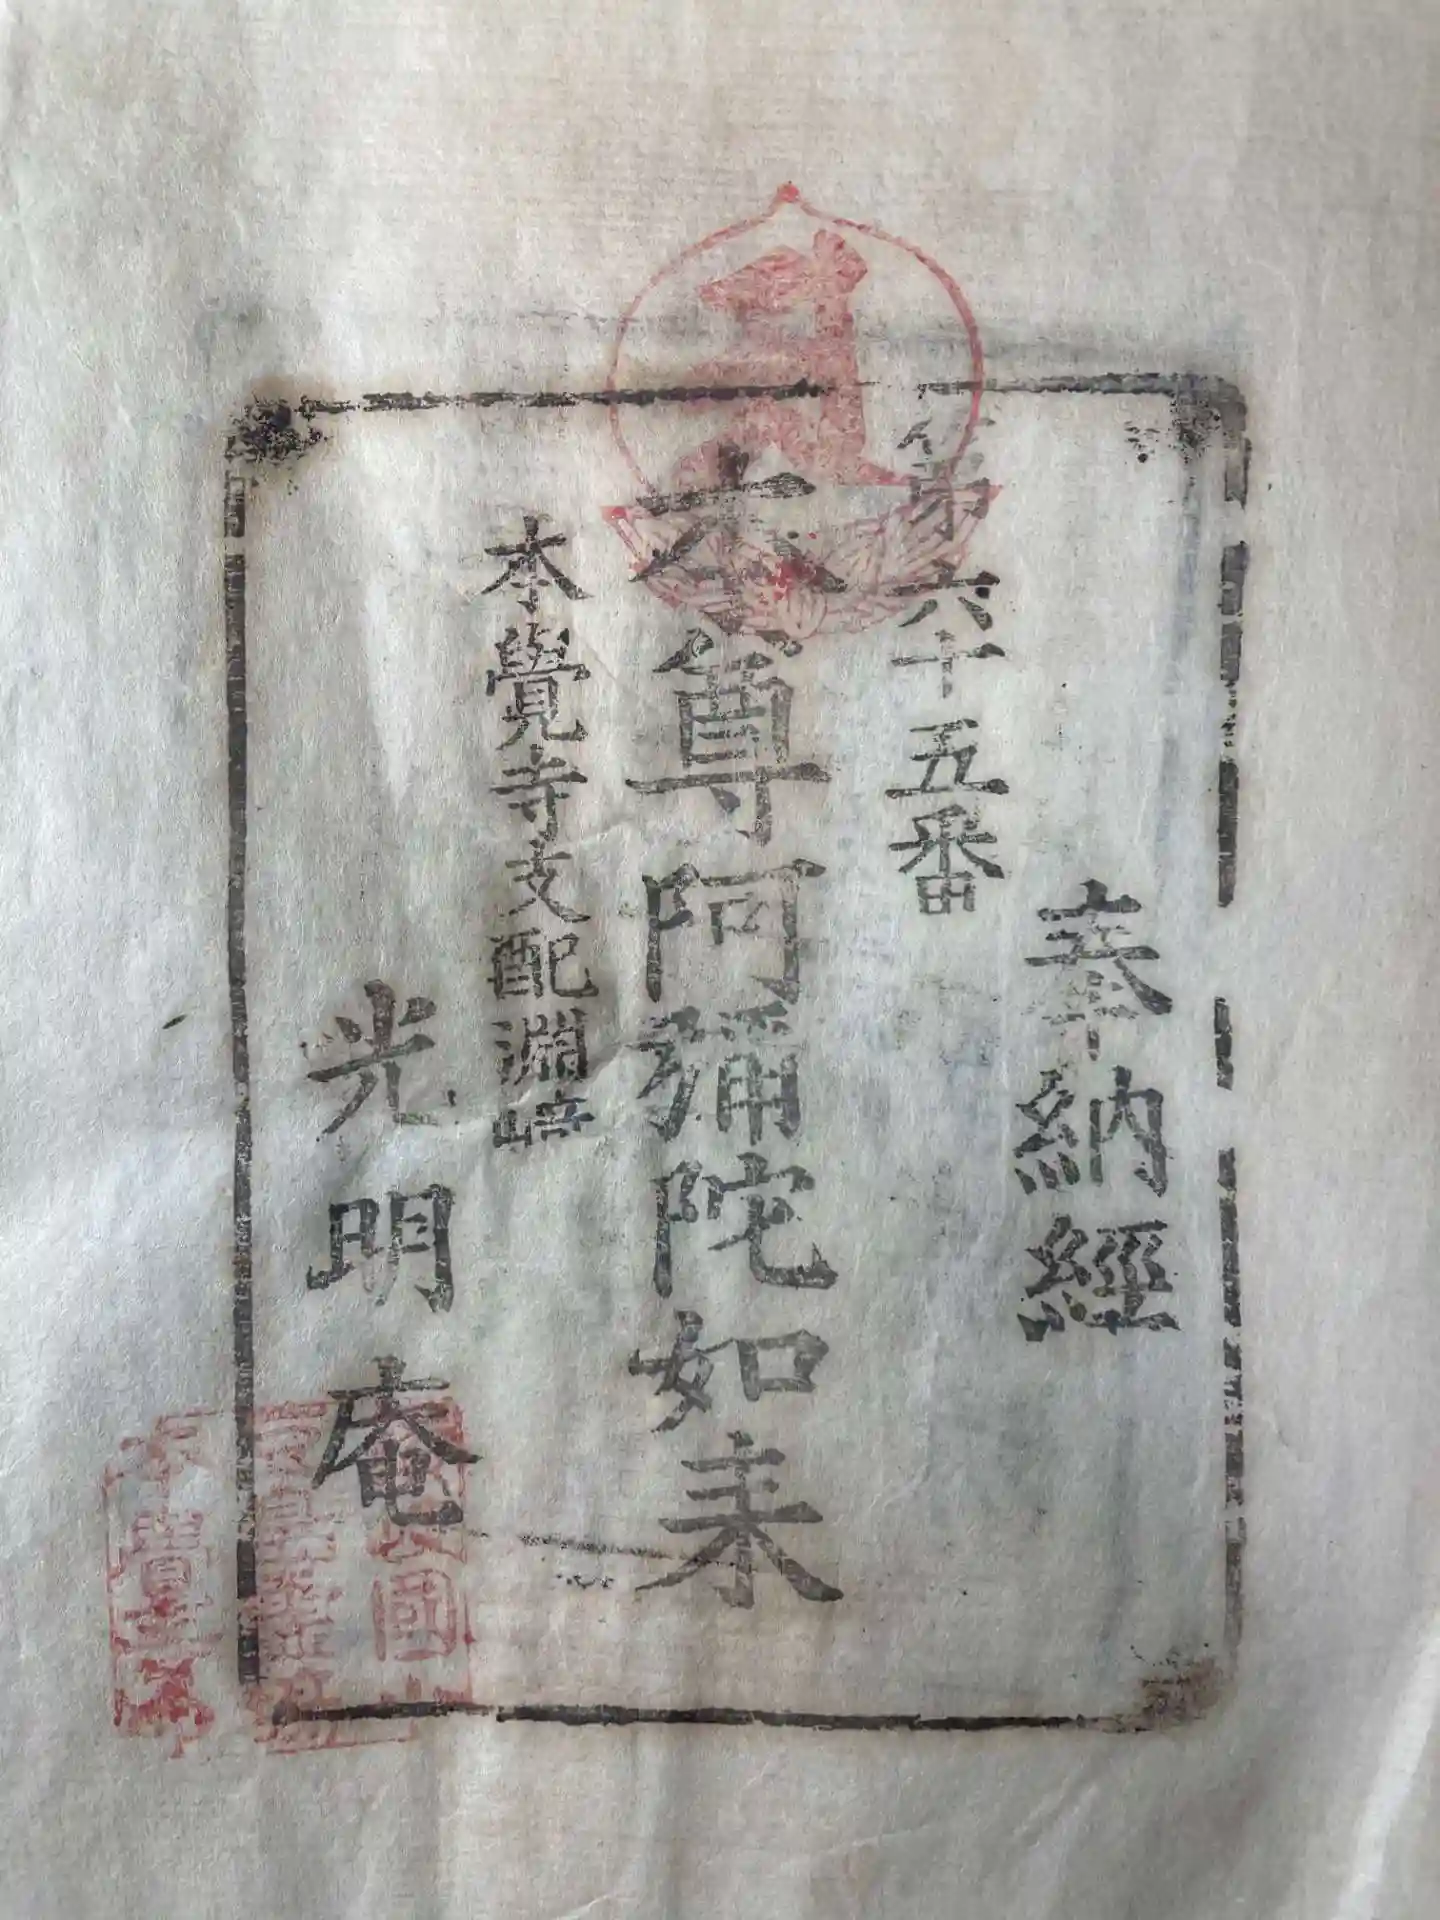 奉納經
第六十五番
本尊阿彌陀如来
本覺寺支配淵崎
光明庵